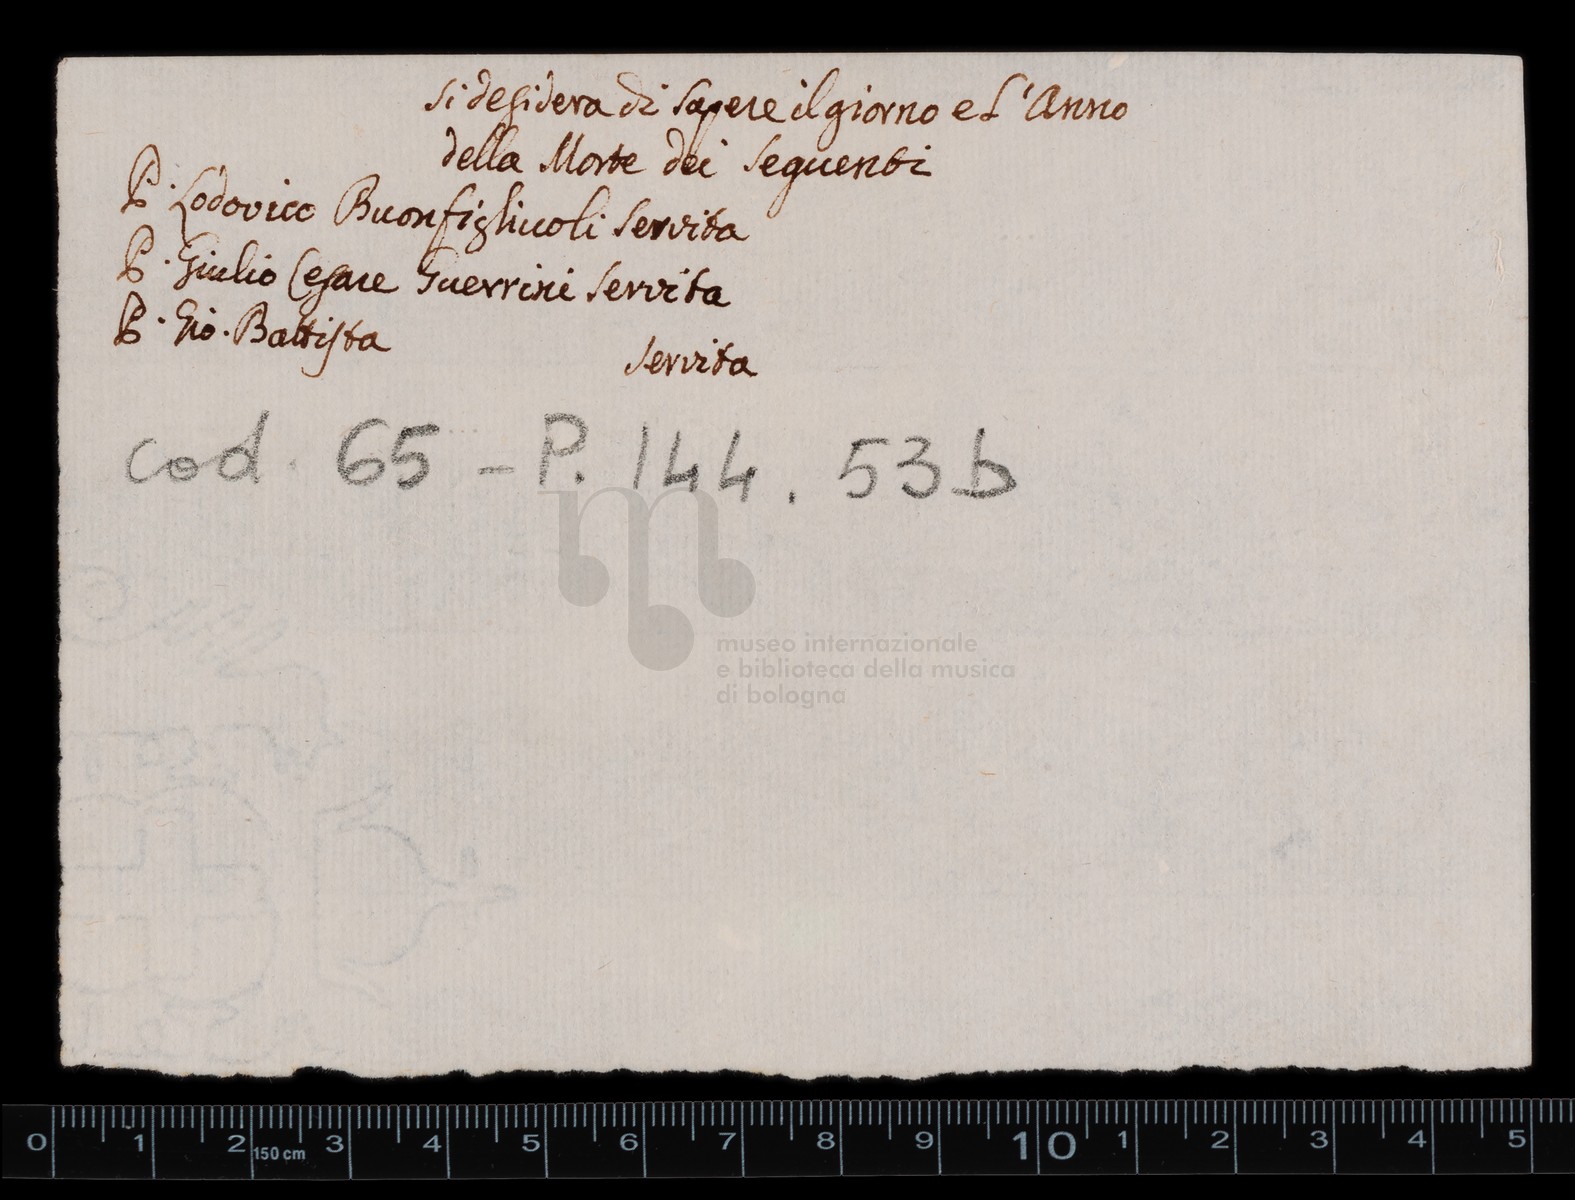 Si desidera di Sapere il giorno e L'Anno
della Morte dei Seguenti
P. Lodovico Buonfigliuoli Servita
P. Giulio Cesare Guerrini Servita
P. Gio. Battista Servita
cod. 65 - P. 144. 53b
museo internazionale
e biblioteca della musica
di bologna
0 1 2 150 cm 3 4 5 6 7 8 9 10 1 2 3 4 5